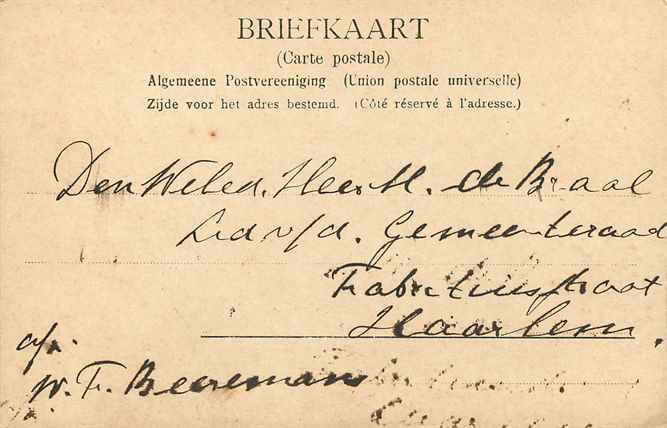 BRIEFKAART
(Carte postale)
Algemeene Postvereeniging (Union postale universelle)
Zijde voor het adres bestemd. (Côté réservé à l'adresse.)
Den Weled. Heer M. de Braal
Lid v/d. Gemeenteraad
Fabriciusstraat
Haarlem.
af.
W. F. Beeremans